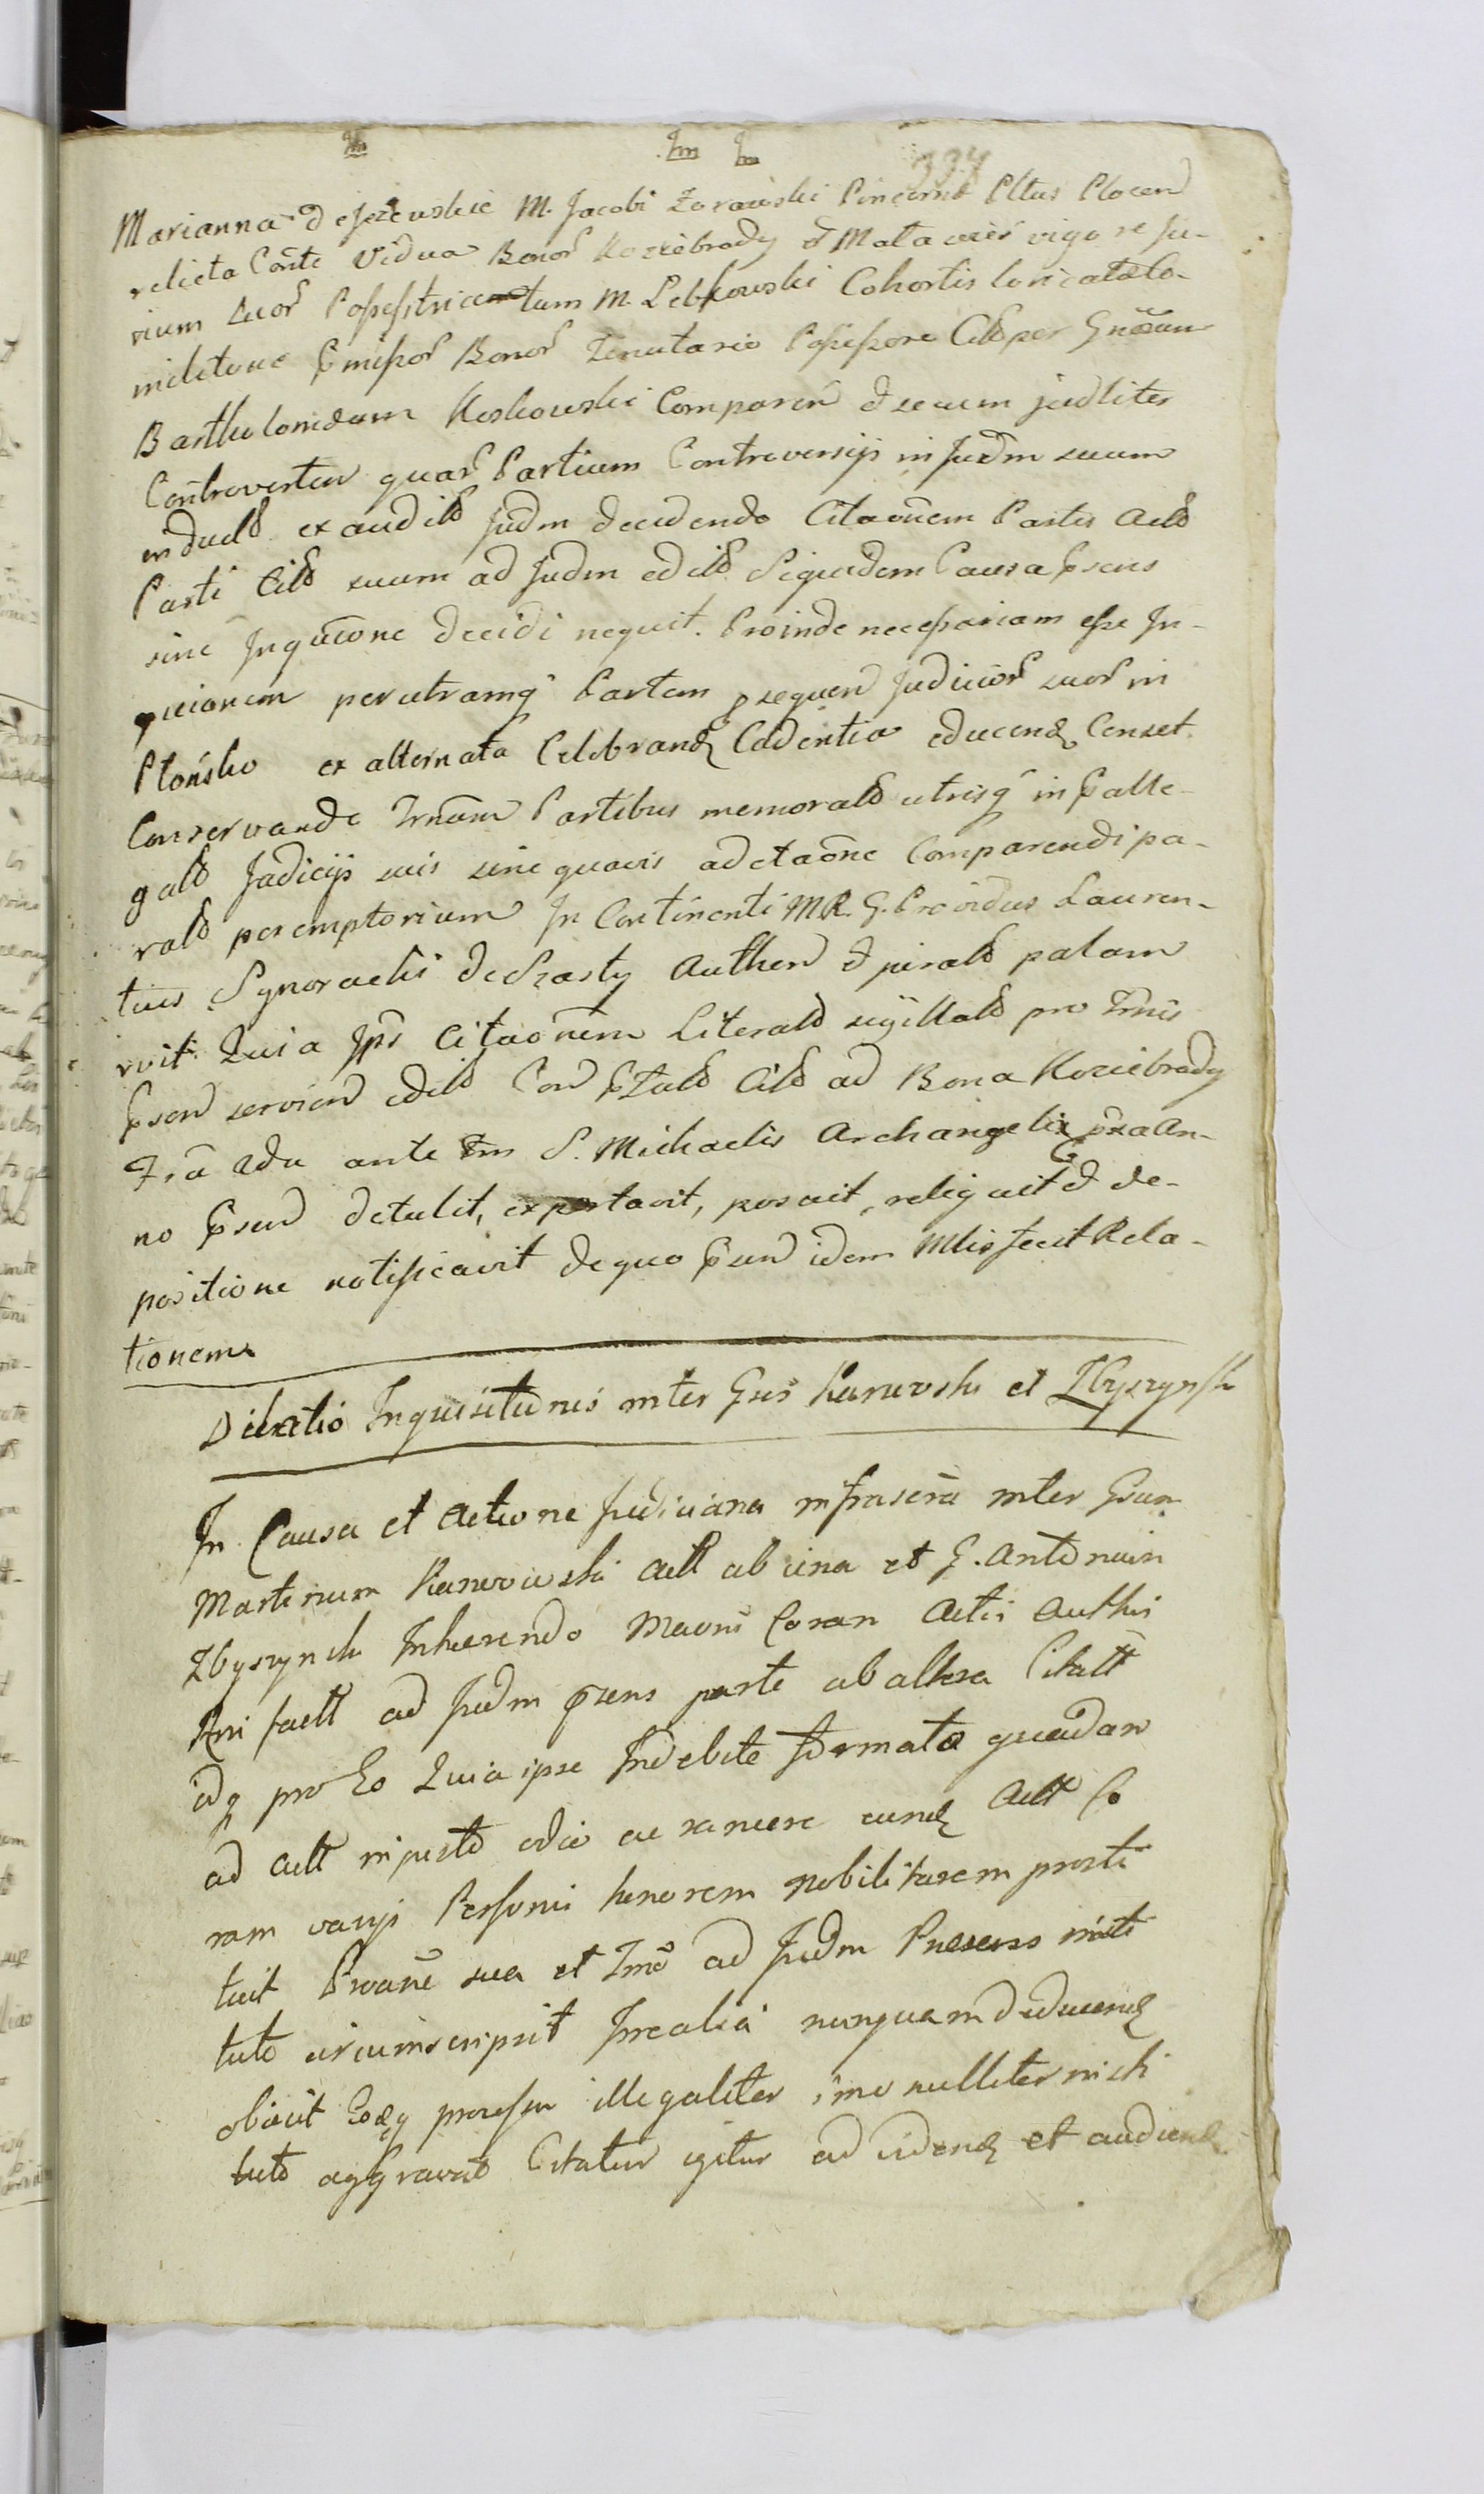 337
Marianna de Jeżewskie M. Jacobi Zorawski Pincerna Pltus Plocen
relicta Conte Vidua Bonor Koziebrody et Mała vigore Ju-
rium suor Possestrice tum M. Lebkowski Cohortis loricatæ Co-
militone Pmissor Bonor Tenutario Possessore Citt per Gnosum
Bartholomæum Koskowski Comparen et secum judliter
Controverten quar Partium Controversijs in Judm suum
indu exaudi Judm decidendo Citaonem Partis Act
Parti Cit suum ad Judm edi Siquidem Causa Psens
sine Inqcione decidi nequit. Proinde necessariam esse In-
qucionem per utramq Partem p sequen Judicior suor in
Płońsko ex alternata Celebrand Cadentia educend Censet.
Conservande Trnum Partibus memorat utrisq in P alle-
gat Judicijs suis sine quavis adcitaone Comparendi pa-
rat peremptorium In Continenti MR. G. Providus Lauren-
tius Synoracki de Szasty Authen et jurat palam
rvit Quia Ips Citaonem Literat sigillat pro Trnis
Psen servien edit Con Ptat Cit ad Bona Koziebrody
Fria 2da ante S. Michaelis Archangeli pxa An-
no Psen detulit, exportavit, posuit, reliquit et de-
positione notificavit de quo Psen idem Mlis fecit Rela-
tionem
Dilatio Inquisitionis inter Gsos Karwoski et Zbyszynsk
In Causa et Actione Judiciaria infrascra inter Gsum
Martinum Karwowski Act ab una et G. Antonium
Zbyszynski Inhærendo Coram Actis Authis
fact ad Judm psens parte ab altera Citatt
idq pro Eo Quia ipse Indebite formata quadam
ad Act injusto odio ac rancore eund Act Co
ram varijs Personis honorem Nobilitarem prosti
tuit sua et ad Judm Præsens insti
tuto circumscripsit alia nunquam deducend
obiicit Eoq processu illegaliter imo nulliter insti
tuto aggravat Citatur igitur ad videnq et audiend